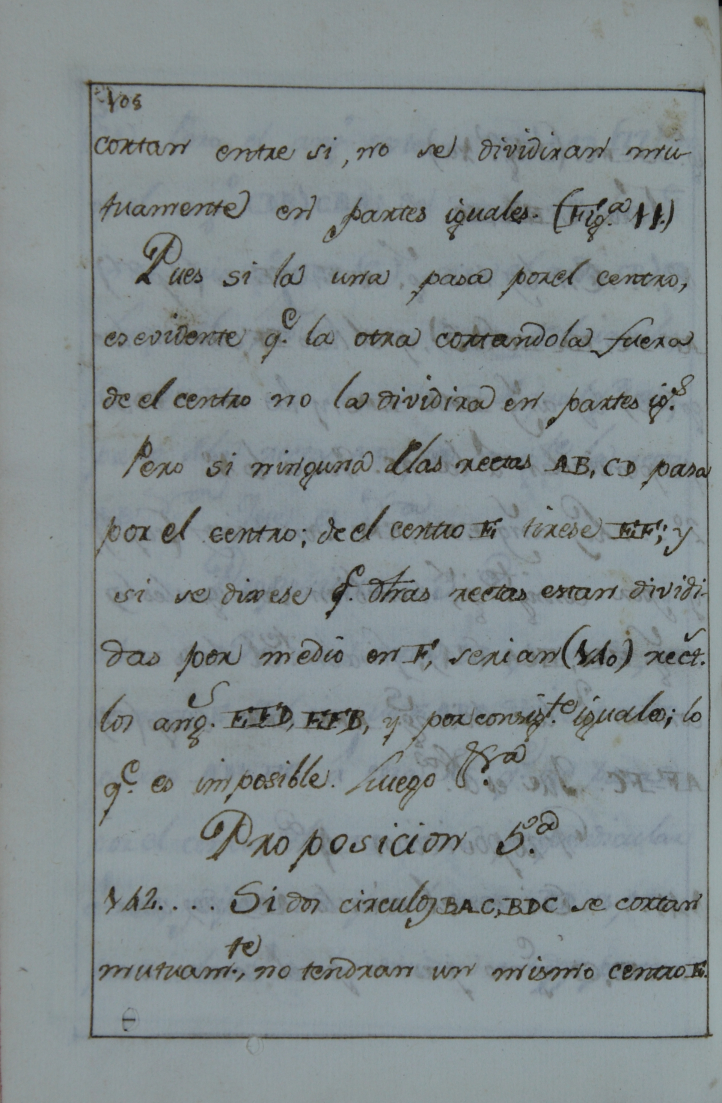 108
cortan entre si, no se dividiran mu-
tuamente en partes iguales. (Fig.ª 11.)
Pues si la una pasa por el centro,
es evidente q.e la otra cortandola fuera
de el centro no la dividira en partes ig.s
Pero si ninguna dlas rectas AB, CD pasa
por el centro; de el centro E tirese EF; y
si se dixese q.e dhas rectas estan dividi-
das por medio en F, serian (140) rect.s
los ang.s EFD, EFB, y por consig.te iguales; lo
q.e es imposible. Luego &.ra
Proposicion 5.ª
142.... Si dos circulos BAC, BDC se cortan
mutuam.te, no tendran un mismo centro E.